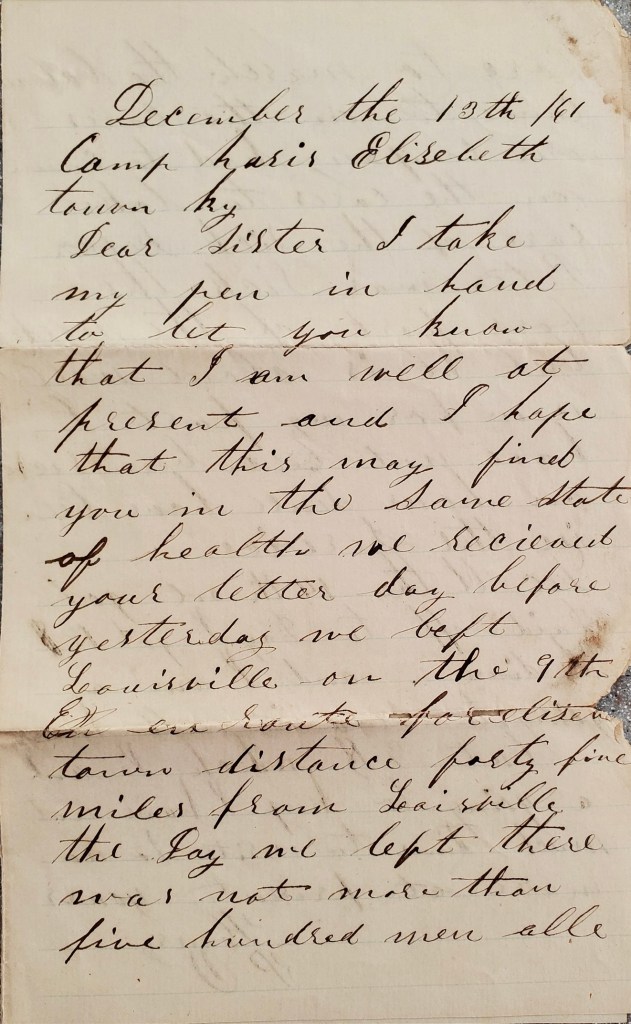 December the 13th /61
Camp haris Elisebeth
town ky
Dear Sister I take
my pen in hand
to let you know
that I am well at
present and I hope
that this may find
you in the same state
of health we recieved
your letter day before
yesterday we left
Louisville on the 9th
en route for elisew
town distance forty five
miles from Loisville
the Day we left there
was not more than
five hundred men alle